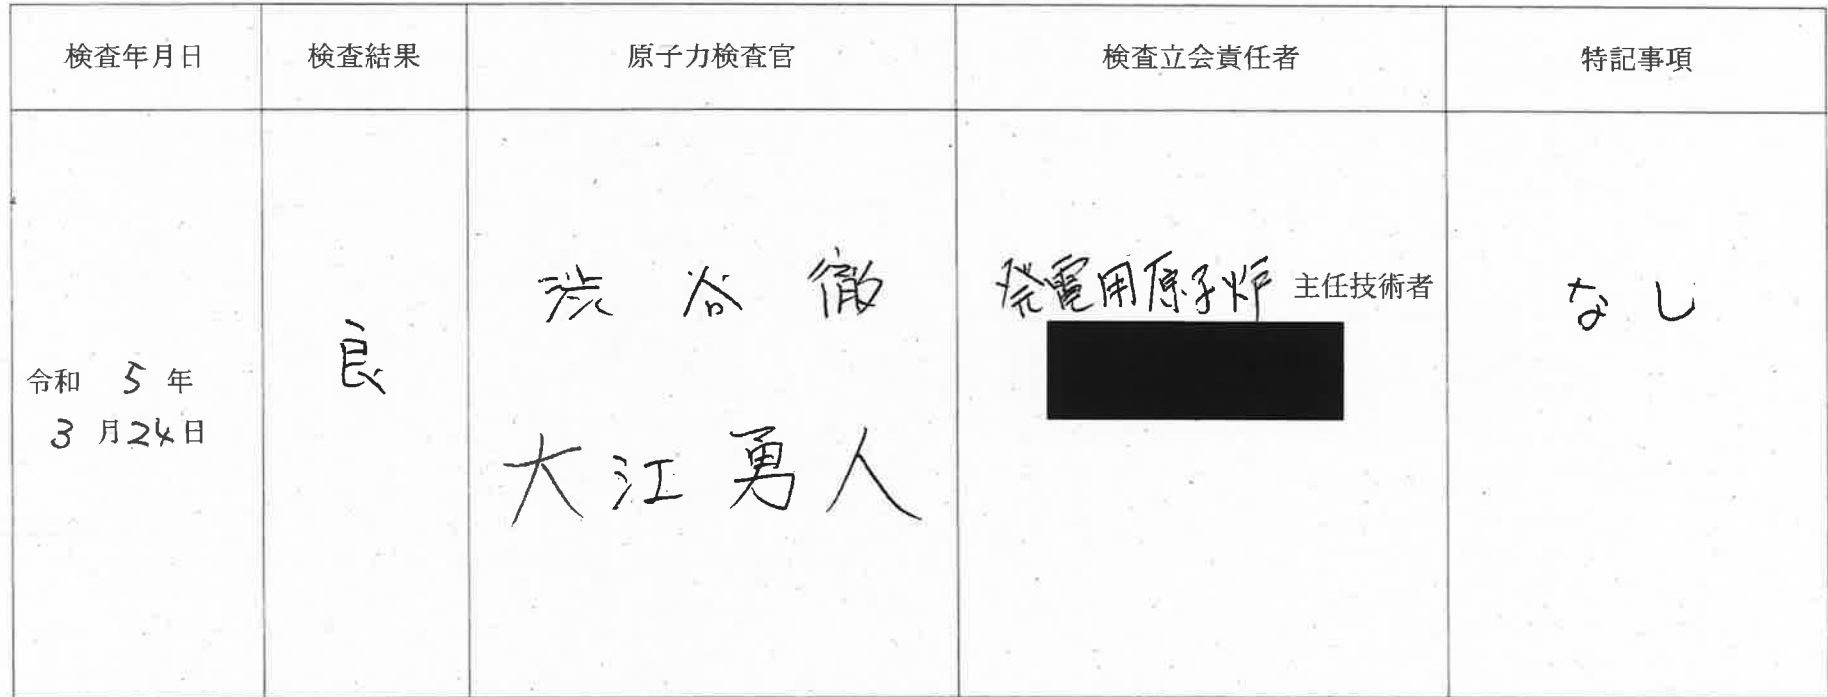 検査年月日 検査結果 原子力検査官 検査立会責任者 特記事項
令和 5 年
3 月 24 日
良
渋谷 徹
大江勇人
発電用原子炉 主任技術者
なし